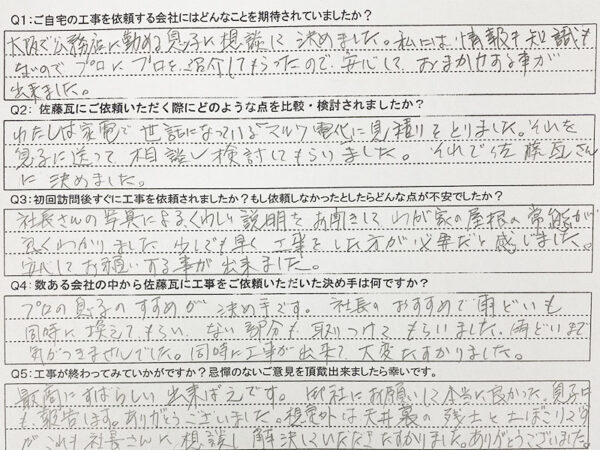 Q1:ご自宅の工事を依頼する会社にはどんなことを期待されていましたか?
大阪で公務店に勤める息子に相談して決めました。私には情報も知識も
ないのでプロにプロを紹介してもらったので安心しておまかせする事が
出来ました。
Q2: 佐藤瓦にご依頼いただく際にどのような点を比較・検討されましたか?
わたしは家電で世話になっているマルワ電化に見積りをとりました。それを
息子に送って相談し検討してもらいました。それで佐藤瓦さん
に決めました。
Q3:初回訪問後すぐに工事を依頼されましたか?もし依頼しなかったとしたらどんな点が不安でしたか?
社長さんの写真によるくわしい説明をお聞きして、わが家の屋根の常態が
良くわかりました。少しでも早く工事をした方が必要だと感じました。
安心してお願いする事が出来ました。
Q4:数ある会社の中から佐藤瓦に工事をご依頼いただいた決め手は何ですか?
プロの息子のすすめが決め手です。社長のおすすめで雨どいも
同時に換えてもらい、ない部分も取りつけてもらいました。雨どいまで
気がつきませんでした。同時に工事が出来て大変たすかりました。
Q5:工事が終わってみていかがですか?忌憚のないご意見を頂戴出来ましたら幸いです。
最高にすばらしい出来ばえです。御社にお願いして本当に良かった。息子に
も報告します。ありがとうございました。想定外は天井裏の残土と土ぼこりです
がこれも社長さんに相談し解決していただきたすかりました。ありがとうございました。